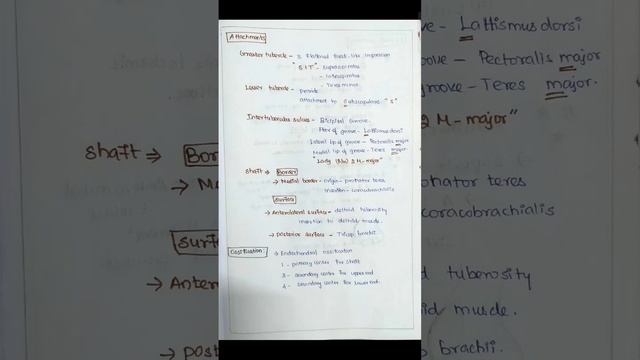 Attachments
Greater tubercle - 3 flattened facet-like impression
"SIT" - Supraspinatus
- Infraspinatus
- Teres minor
Lesser tubercle - Provide
attachment to Subscapularis "S"
Intertubercular sulcus - Bicipital Groove.
floor of groove - Lattismus dorsi
lateral lip of groove - Pectoralis major
Medial lip of groove - Teres major.
"Lady 2 M-major"
Shaft ⇒ Border
→ Medial border - origin - pronator teres
insertion - coracobrachialis
Surface
→ Anterolateral surface - deltoid tuberosity
insertion to deltoid muscle.
→ posterior surface - Tricep brachii.
Ossification: → Endochondral ossification
1 - primary center for shaft
3 - secondary center for upper end
2 - secondary center for lower end.
- Lattismus dorsi
oove - Pectoralis major
groove - Teres major.
2 M-major"
Shaft ⇒ Bor
→ M
onator teres
coracobrachialis
Surf
→ Anter
tuberosity
id muscle.
→ post
brachii.